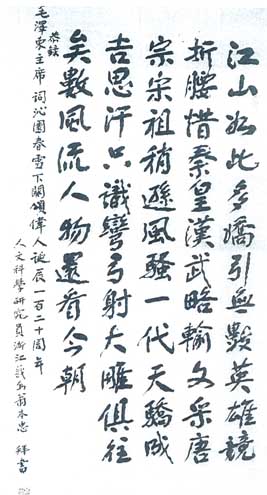 江山如此多嬌引無數英雄競
折腰惜秦皇漢武略輸文采唐
宗宋祖稍遜風騷一代天驕成
吉思汗只識彎弓射大雕俱往
矣數風流人物還看今朝
恭錄
毛澤東主席詞沁園春雪下闋頌偉人誕辰一百二十周年
人文科學研究員浙江義烏翁本忠 書